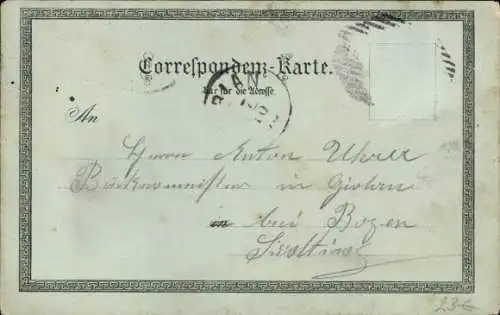 Correspondenz-Karte.
Nur für die Adresse
An
Herrn Anton Uhrer
Bäckermeister in
in bei Bozen
Südtirol
23€